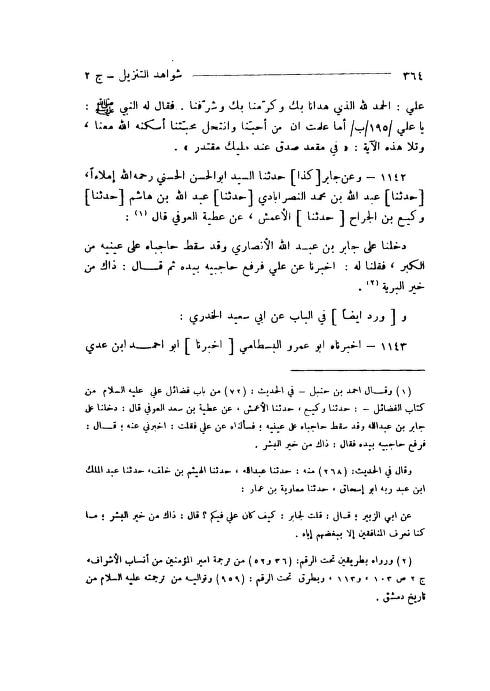 ٣٦٤ شواهد التنزيل - ج ٢
علي : الحمد لله الذي هدانا بك وكرّمنا بك وشرّفنا . فقال له النبي ﷺ :
يا علي /١٩٥/ب/ أما علمت ان من أحبّنا وانتحل محبّتنا أسكنه الله معنا ،
وتلا هذه الآية : « في مقعد صدق عند مليك مقتدر » .
١١٤٢ - وعن جابر [كذا] حدثنا السيد ابوالحسن الحسني رحمه الله إملاءاً،
[حدثنا] عبد الله بن محمد النصرابادي [حدثنا] عبد الله بن هاشم [حدثنا]
وكيع بن الجراح [ حدثنا ] الأعمش ، عن عطية العوفي قال (١) :
دخلنا على جابر بن عبد الله الأنصاري وقد سقط حاجباه على عينيه من
الكبر ، فقلنا له : اخبرنا عن علي فرفع حاجبيه بيده ثم قال : ذاك من
خير البرية (٢) .
و [ ورد ايضاً ] في الباب عن ابي سعيد الخدري :
١١٤٣ - اخبرناه ابو عمرو البسطامي [ اخبرنا ] ابو احمد ابن عدي
(١) وقال احمد بن حنبل - في الحديث : (٧٢) من باب فضائل علي عليه السلام من
كتاب الفضائل - : حدثنا وكيع ، حدثنا الأعمش ، عن عطية بن سعد العوفي قال : دخلنا على
جابر بن عبدالله وقد سقط حاجباه على عينيه ؛ فسألناه عن علي فقلت : اخبرني عنه ؛ قال :
فرفع حاجبيه بيده فقال : ذاك من خير البشر .
وقال في الحديث: (٢٦٨) منه : حدثنا عبدالله ، حدثنا الهيثم بن خلف، حدثنا عبد الملك
ابن عبد ربه ابو إسحاق ، حدثنا معاوية بن عمار :
عن ابي الزبير ؛ قال : قلت لجابر : كيف كان علي فيكم ؟ قال : ذاك من خير البشر ؛ ما
كنا نعرف المنافقين إلا ببغضهم إياه .
(٢) ورواه بطريقين تحت الرقم: (٣٦ و٥٢) من ترجمة امير المؤمنين من أنساب الأشراف،
ج ٢ ص ١٠٣ ، و١١٣ ، وبطرق تحت الرقم : (٩٥٩) وتواليه من ترجمته عليه السلام من
تاريخ دمشق .